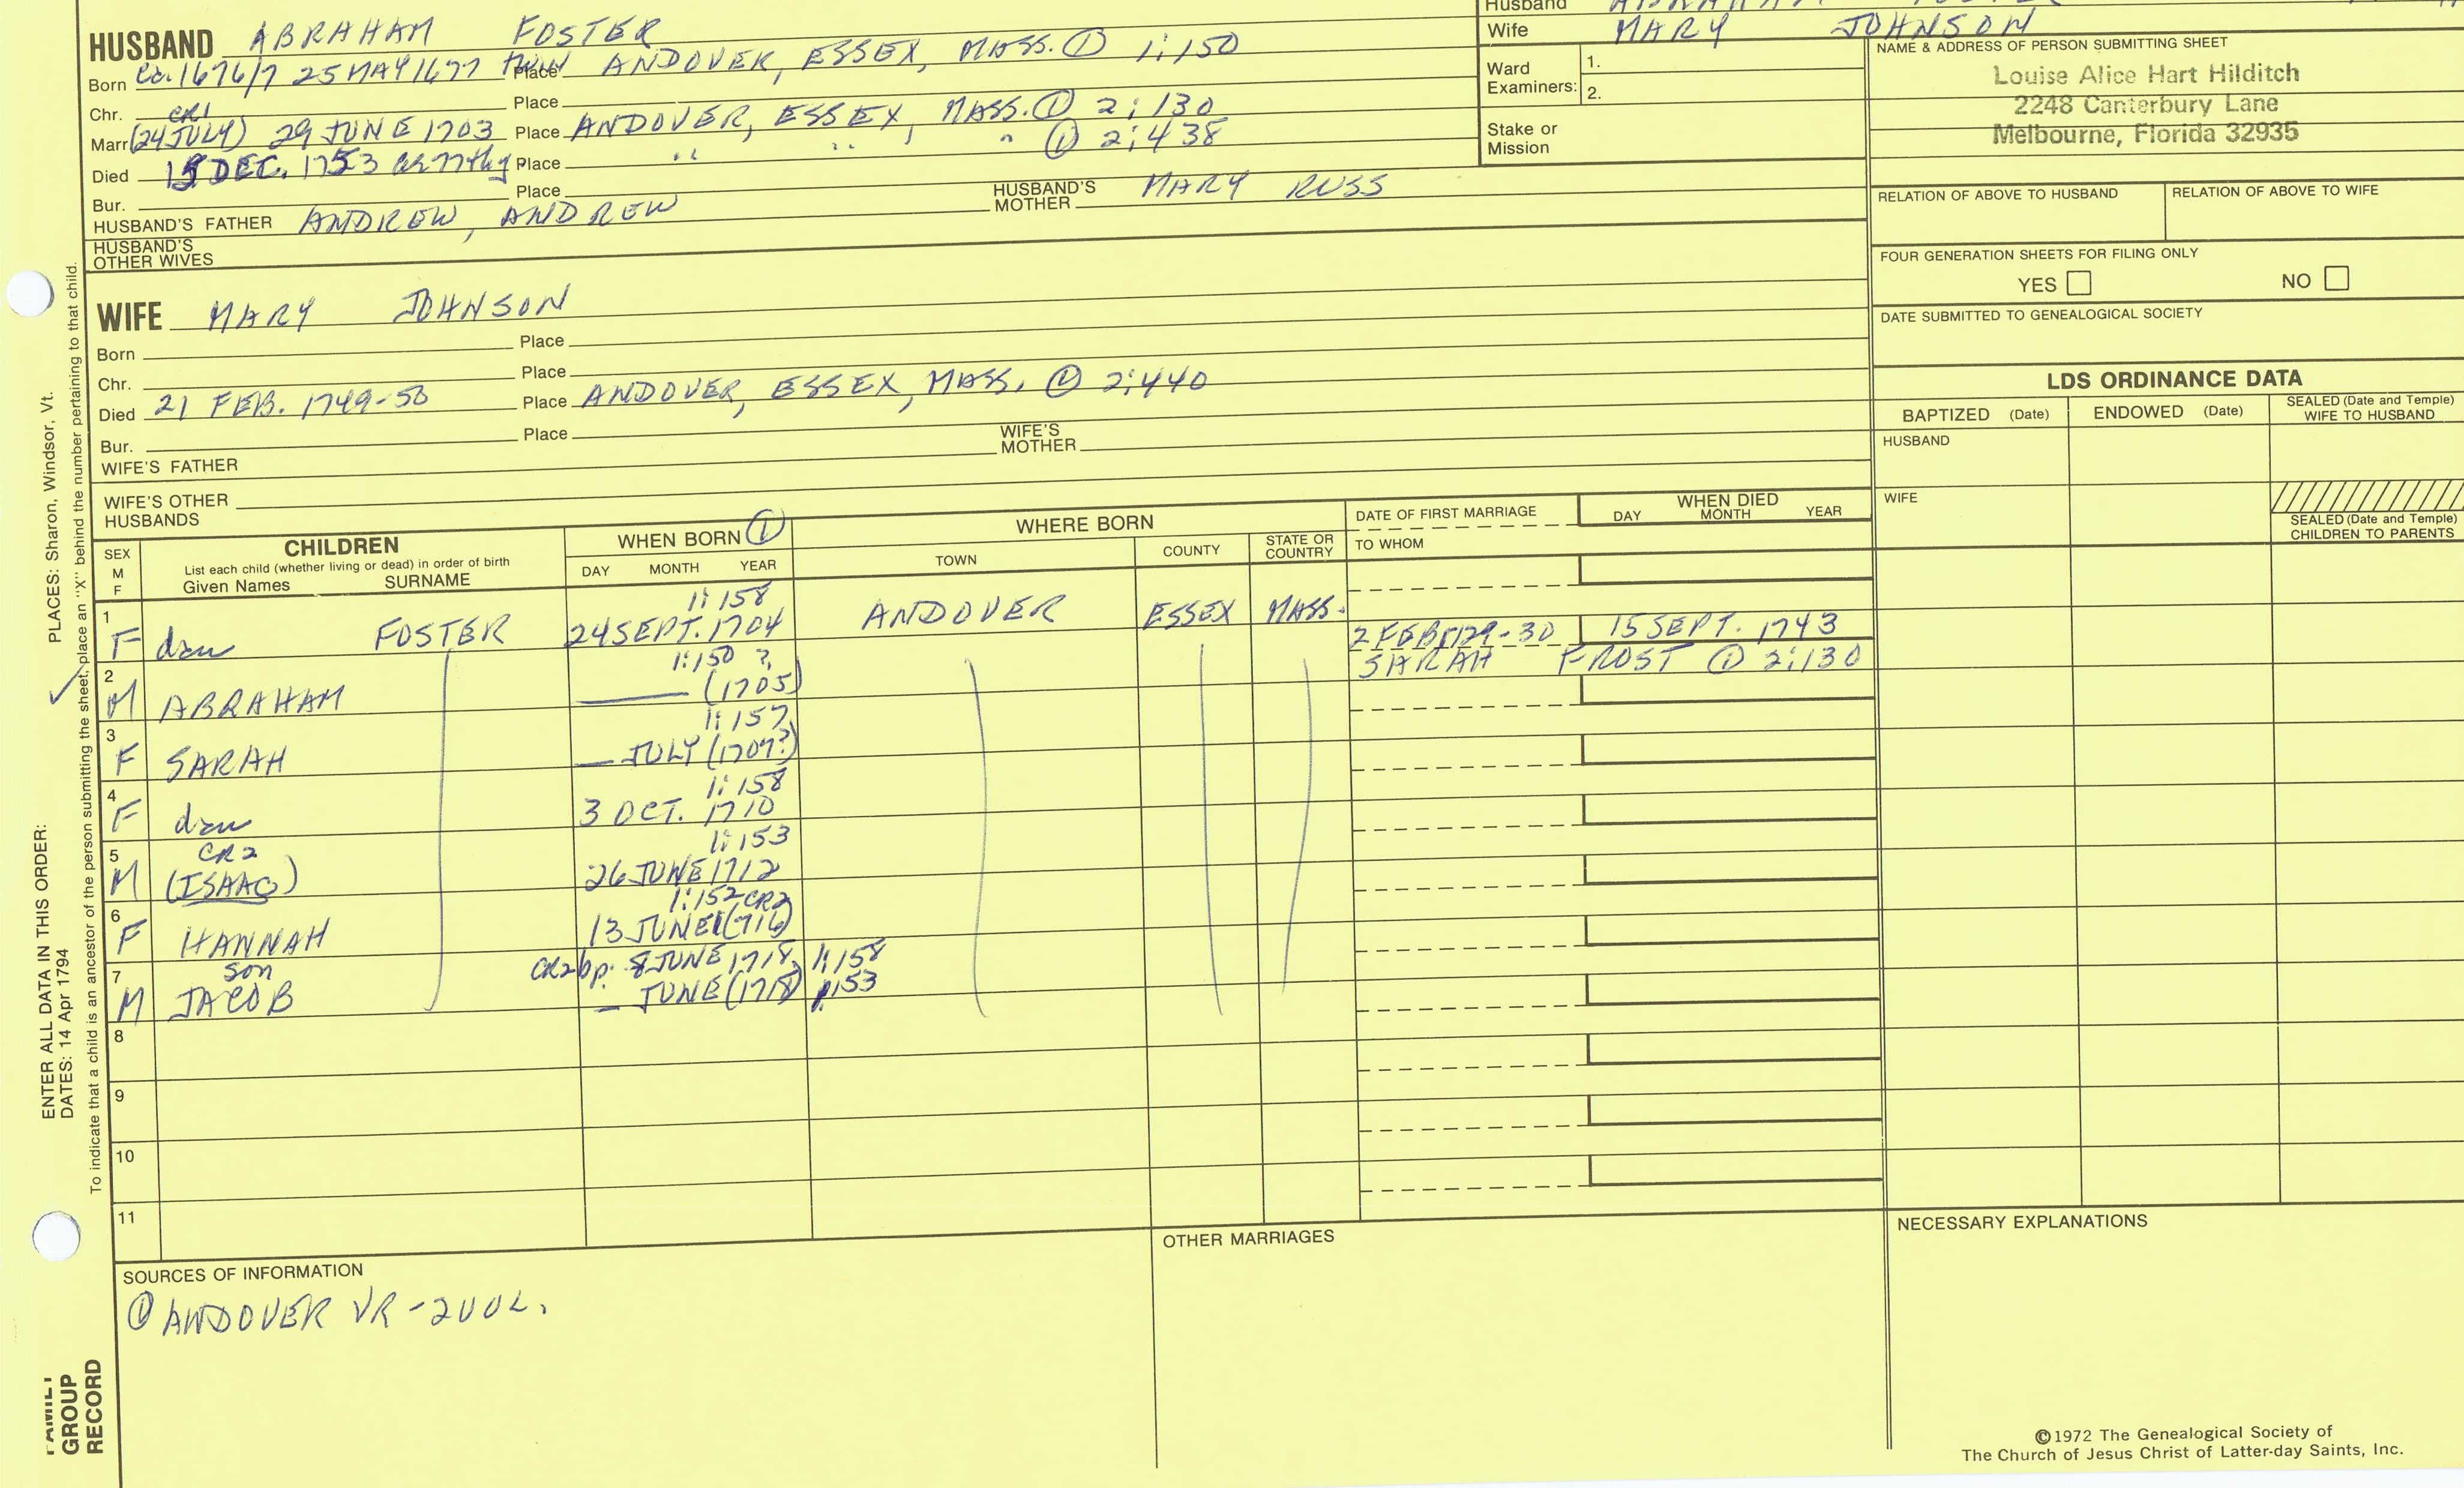 HUSBAND ABRAHAM FOSTER
Born ca. 1676/7 25 MAY 1677 Place ANDOVER, ESSEX, MASS. ① 1:150
Chr. Place
CR1
Marr. (24 JULY) 29 JUNE 1703 Place ANDOVER, ESSEX, MASS. ① 2:130
Died DEC. 1753 Place " " " ① 2:438
Bur. Place
HUSBAND'S FATHER ANDREW, ANDREW HUSBAND'S MOTHER MARY RUSS
HUSBAND'S OTHER WIVES
Husband
Wife MARY JOHNSON
Ward Examiners: 1.
2.
Stake or Mission
NAME & ADDRESS OF PERSON SUBMITTING SHEET
Louise Alice Hart Hilditch
2248 Canterbury Lane
Melbourne, Florida 32935
RELATION OF ABOVE TO HUSBAND RELATION OF ABOVE TO WIFE
FOUR GENERATION SHEETS FOR FILING ONLY
YES NO
DATE SUBMITTED TO GENEALOGICAL SOCIETY
WIFE MARY JOHNSON
Born Place
Chr. Place
Died 21 FEB. 1749-50 Place ANDOVER, ESSEX, MASS. ① 2:440
Bur. Place
WIFE'S FATHER WIFE'S MOTHER
WIFE'S OTHER HUSBANDS
LDS ORDINANCE DATA
BAPTIZED (Date) ENDOWED (Date) SEALED (Date and Temple) WIFE TO HUSBAND
HUSBAND
WIFE
SEALED (Date and Temple) CHILDREN TO PARENTS
SEX M F
CHILDREN
List each child (whether living or dead) in order of birth
Given Names SURNAME
WHEN BORN ①
DAY MONTH YEAR
WHERE BORN
TOWN COUNTY STATE OR COUNTRY
DATE OF FIRST MARRIAGE
TO WHOM
WHEN DIED
DAY MONTH YEAR
1:158
1 F dau FOSTER 24 SEPT. 1704 ANDOVER ESSEX MASS.
1:150 ? 2 FEB 1729-30 15 SEPT. 1743
2 M ABRAHAM (1705) SARAH FROST ① 2:130
1:157
3 F SARAH JULY (1707?)
1:158
4 F dau 3 OCT. 1710
CR2 1:153
5 M (ISAAC) 26 JUNE 1712
1:152 CR2
6 F HANNAH 13 JUNE (1716)
son CR2 bp. 8 JUNE 1718, 1:158
7 M JACOB JUNE (1718) 1:153
8
9
10
11
SOURCES OF INFORMATION
① ANDOVER VR - 2 VOL.
OTHER MARRIAGES
NECESSARY EXPLANATIONS
©1972 The Genealogical Society of
The Church of Jesus Christ of Latter-day Saints, Inc.
ENTER ALL DATA IN THIS ORDER:
DATES: 14 Apr 1794
PLACES: Sharon, Windsor, Vt.
To indicate that a child is an ancestor of the person submitting the sheet, place an "X" behind the number pertaining to that child.
FAMILY
GROUP
RECORD